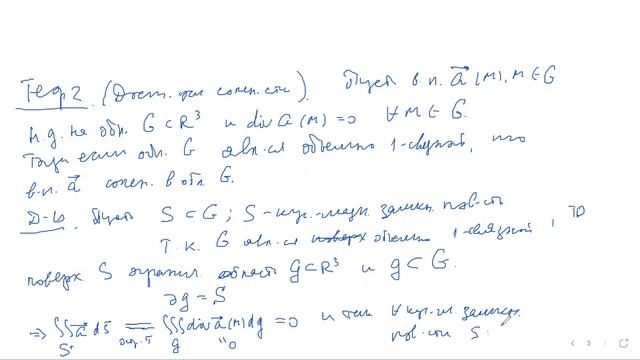 Теор 2. (Дост. усл солен.сти). Пусть в.п. a⃗(M), M∈G
н.д. на обл. G⊂R³ и div a(M)=0 ∀M∈G.
Тогда если обл. G явл-ся объемно 1-связной, то
в.п. a⃗ солен. в обл G.
Д-во. Пусть S⊂G; S - кус.-гладк. замкн. пов-сть
Т.к. G явл-ся поверх объемно 1-связной, то
поверх S огранич. область g⊂R³ и g⊂G.
∂g = S
⇒ ∬a⃗ ds̄ = ∭div a⃗(M)dg = 0 и так ∀ кус.-гл. замкн.
S⁺ g "0 пов-сти S:
3